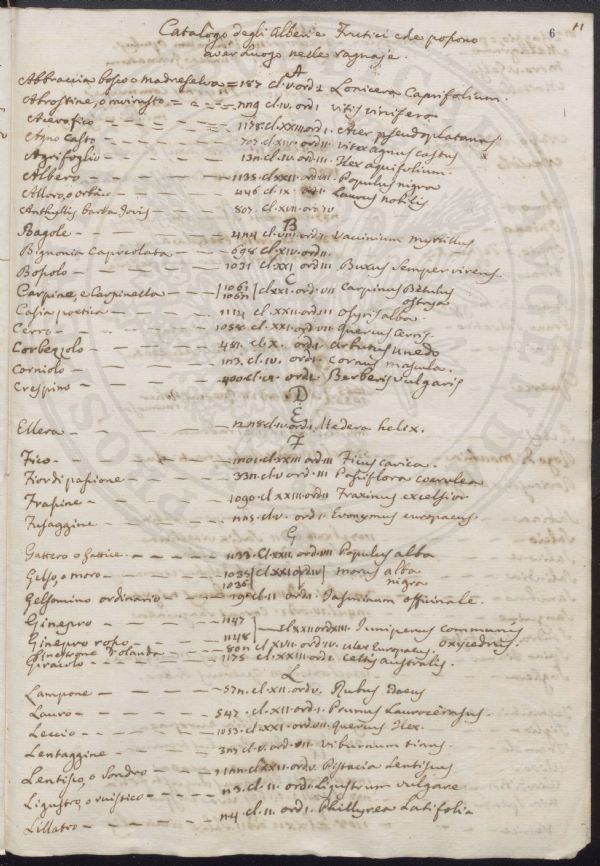 6 11
Catalogo degli Alberi e Frutici che possono
aver luogo nelle ragnaje.
A
Abbraccia bosco o madreselva = 187 cl. v. ord. 1 Lonicera Caprifolium.
Abrostine, o cl. iv. ord. 1. vitis vinifera
Acerofico - 1178. cl. XXIII ord. 1. Acer pseudoplatanus
Agno casto - 707. cl. XIV. ord. II. vitex agnus castus x
Agrifoglio - cl. IV. ord. III. Ilex aquifolium.
Albero - 1135 cl. XXII. ord. VII. Populus nigra
Alloro, o orbaco - 446 cl. IX. ord. 1 Laurus nobilis
Anthyllis barba Jovis - 807. cl. XVII. ord. IV
B
Bagole - cl. VIII. ord. 1. Vaccinium myrtillus
Bignonia Capreolata - 698 cl. XIV. ord. II.
Bossolo - 1031 cl. XXI ord. III. Buxus sempervirens.
C
Carpine, e Carpinella - 1061 | cl. XXI. ord. VII Carpinus Betulus
ostrya
Casia poetica - 1114 cl. XXII. ord. III Osyris alba.
Cerro - 1058. cl. XXI. ord. VII. Quercus Cerris.
Corbezzolo - cl. X. ord. 1 Arbutus unedo
Corniolo - 103. cl. IV. ord. 1. Cornus mascula.
Crespino - 400 cl. VI. ord. 1. Berberis vulgaris
D
E
Ellera - cl. v. ord. 1. Hedera helix.
F
Fico - cl. XXIII ord. III Ficus carica.
Fiordipassione - cl. v ord. III Passiflora coerulea
Frassine - 1090. cl. XXIII. ord. II Fraxinus excelsior
Fusaggine - cl. v. ord. 1. Evonymus europaeus.
G
Gattero o Gattice. - 1133. cl. XXII. ord. VII Populus alba
Gelso, o moro - 1035 | cl. XXI ord. IV | morus alba
1036 nigra
Gelsomino ordinario - 19 cl. II. ord. 1. Jasminum officinale.
Ginepro - 1147
Ginepro rosso - 1148 cl. XXII ord. XIII. Juniperus communis
oxycedrus.
Ginestrone d'olanda - cl. XVII. ord. IV. ulex Europaeus.
Giracolo - 1175 cl. XXIII. ord. 1. Celtis australis.
L
Lampone - cl. XII. ord. V. Rubus Idaeus
Lauro - 547. cl. XII. ord. 1. Prunus Laurocerasus
Leccio - 1053. cl. XXI. ord. VII. Quercus Ilex.
Lentaggine - cl. V. ord. III. viburnum tinus.
Lentisco, o Sondro - cl. XXII. ord. V. Pistacia Lentiscus
Ligustro, o ruistico - cl. II. ord. 1. Ligustrum vulgare
Lillatro - cl. II. ord. 1. Phillyrea Latifolia